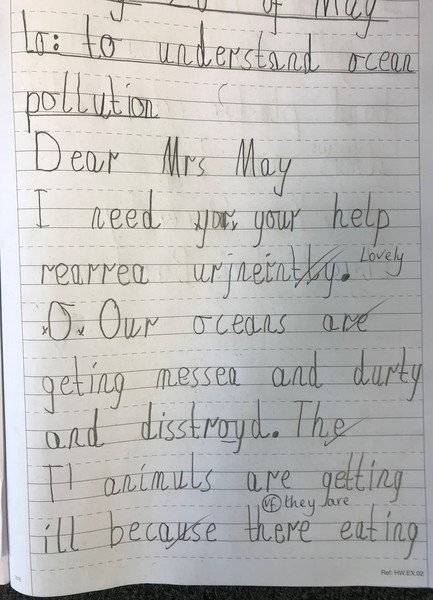 of May
Lo: to understand ocean
pollution
Dear Mrs May
I need your your help
rearrea urjneintly. Lovely
O. Our oceans are
geting messea and durty
and disstroyd. The
T animuls are getting
vf they are
ill because there eating
Ref: HW.EX.02